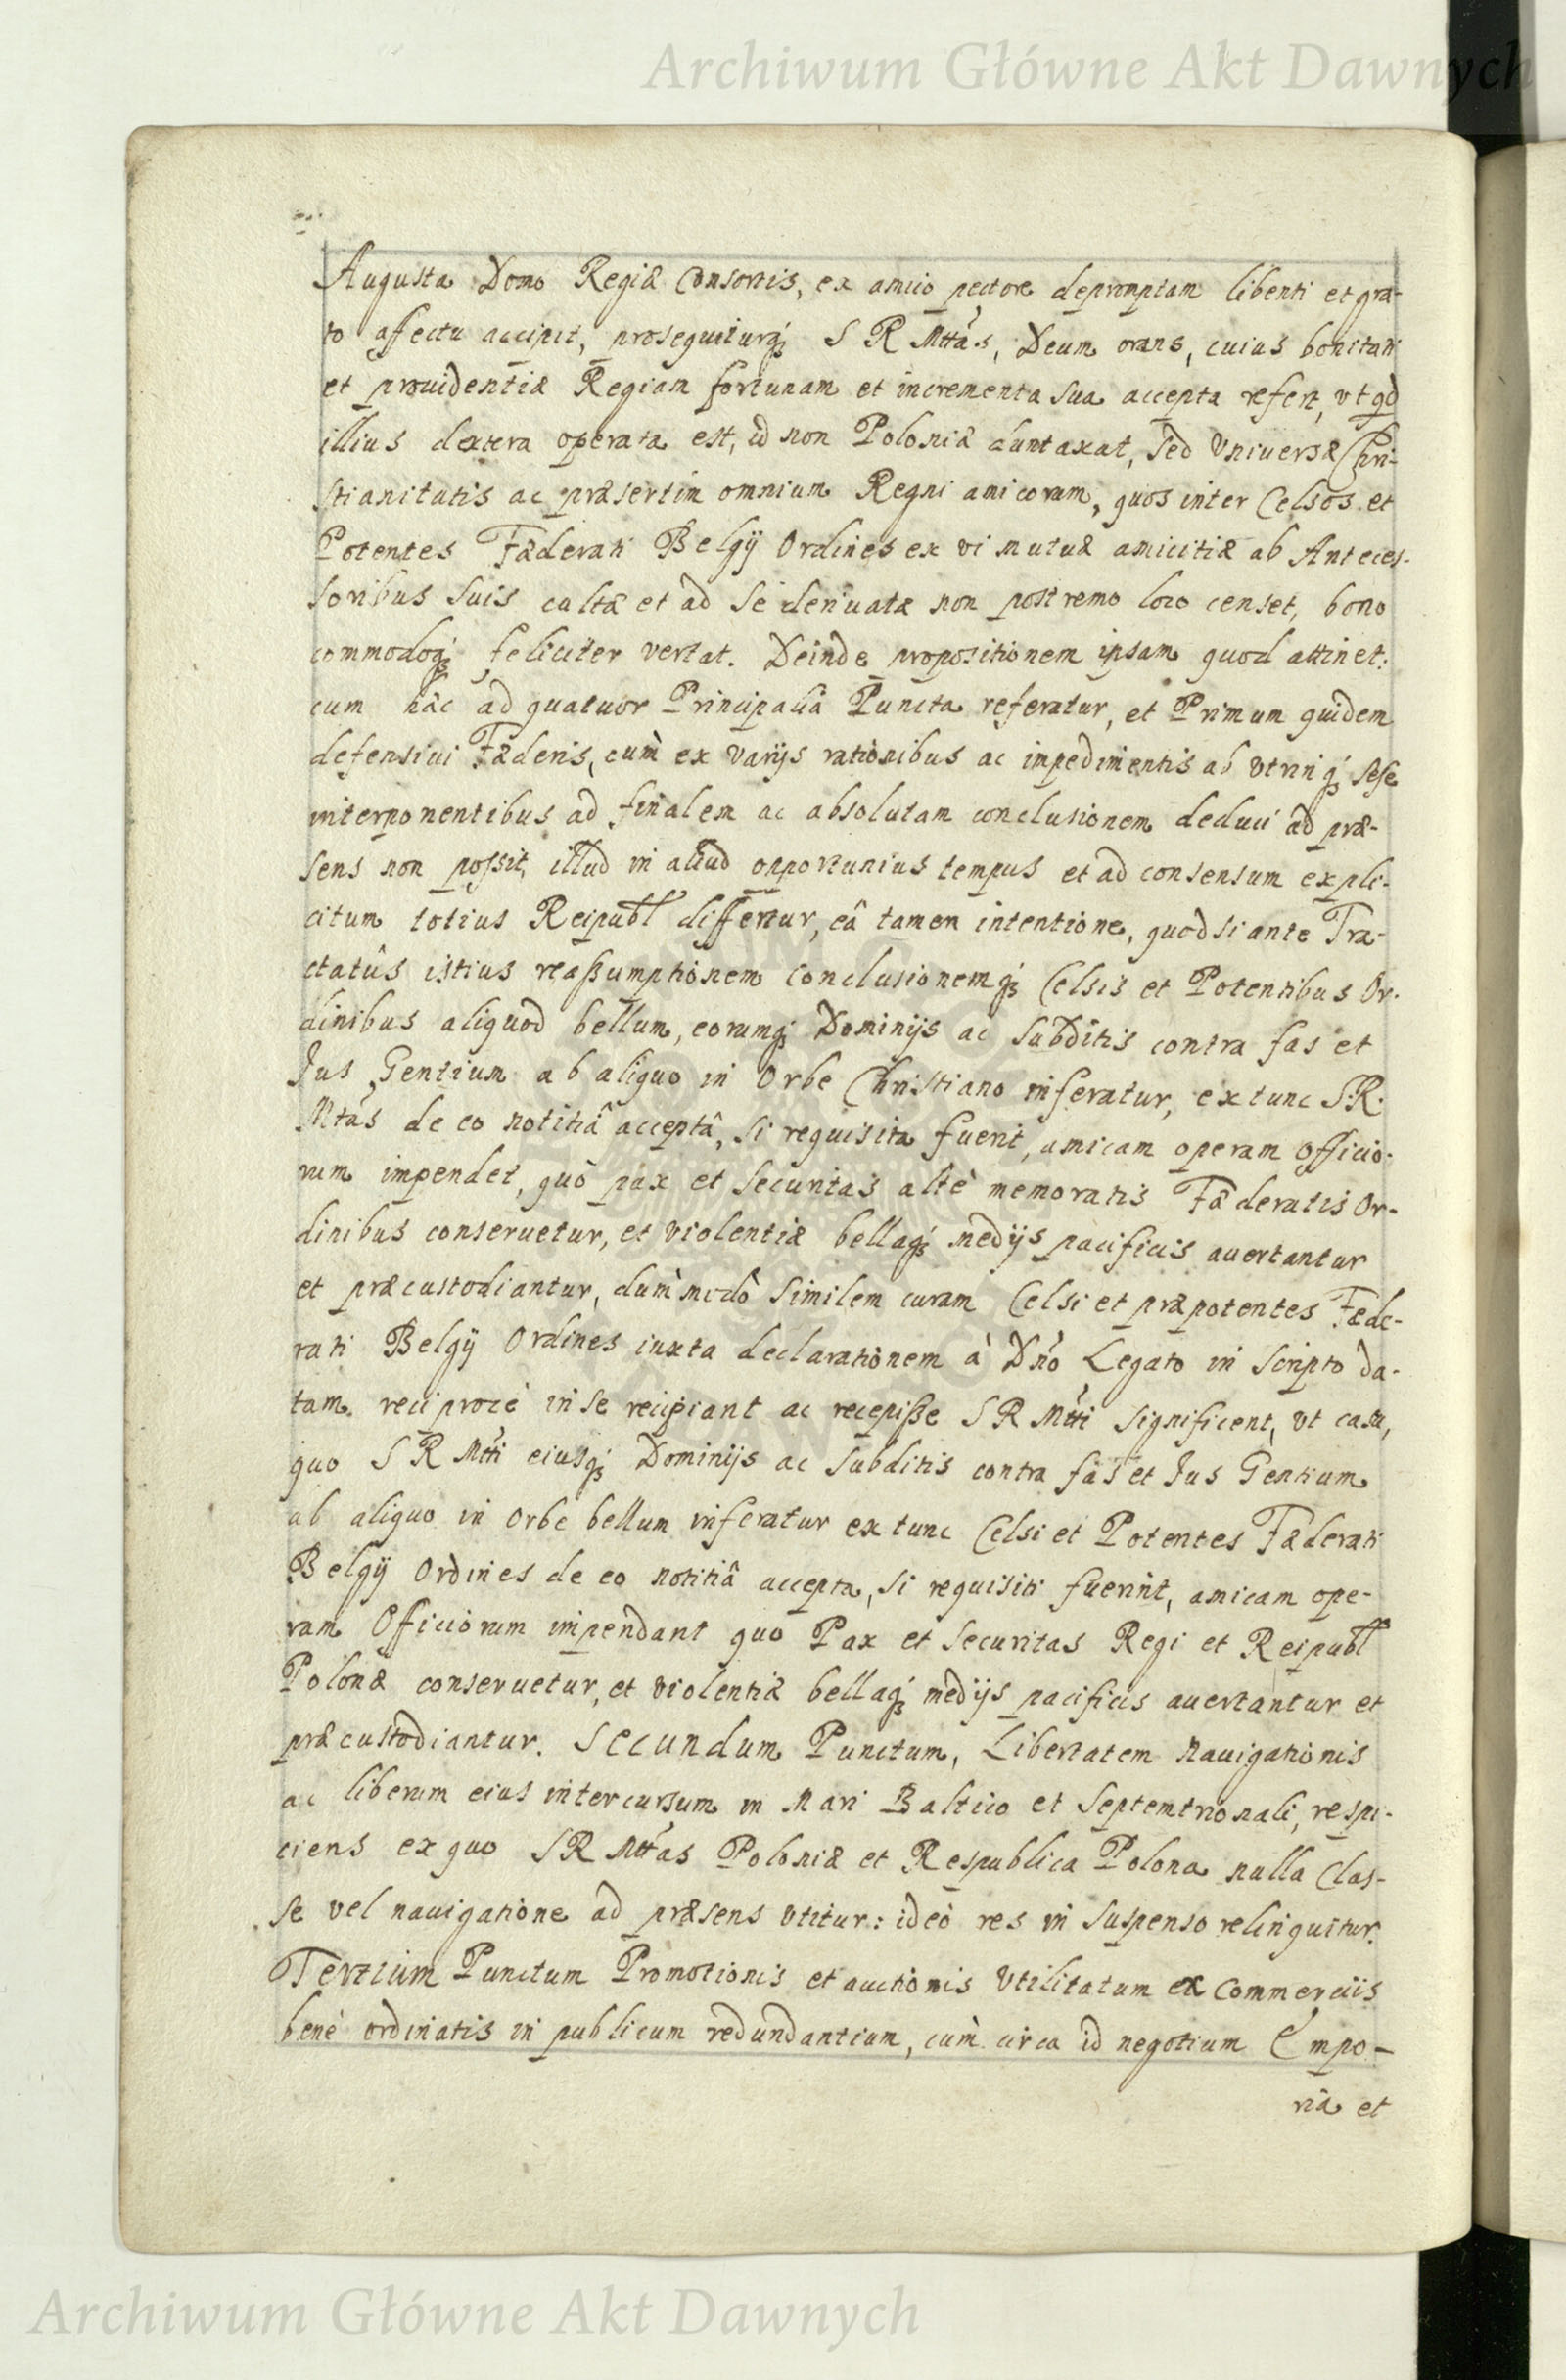 Archiwum Główne Akt Dawnych
Augusta Domo Regiæ Consortis, ex amico pectore depromptam libenti et gra-
to affectu accipit, prosequiturq́; S R Mttas, Deum orans, cuius bonitati
et prouidentiæ Regiam fortunam et incrementa sua accepta refert, vt qd
illius dextera operata est, id non Poloniæ duntaxat, sed Vniuersæ Chri-
stianitatis ac præsertim omnium Regni amicorum, quos inter Celsos et
Potentes Fæderati Belgÿ Ordines ex vi mutuæ amicitiæ ab Anteces-
soribus suis cultæ et ad se deriuatæ non postremo loco censet, bono
commodoq́; feliciter vertat. Deinde propositionem ipsam quod attinet:
cum hæc ad quatuor Principalia Puncta referatur, et Primum quidem
defensiui Fæderis, cum̀ ex varijs rationibus ac impedimentis ab vtrinq́; sese
interponentibus ad finalem ac absolutam conclusionem deduci ad præ-
sens non possit, illud in aliud opportunius tempus et ad consensum expli-
citum totius Reipubl differtur, eâ tamen intentione, quod si ante Tra-
ctatûs istius reassumptionem conclusionemq́; Celsis et Potentibus Or-
dinibus aliquod bellum, eorumq́; Dominijs ac Subditis contra fas et
Jus Gentium ab aliquo in Orbe Christiano inferatur, ex tunc S.R.
Mtas de eo notitiâ acceptâ, si requisita fuerit, amicam operam Officio-
rum impendet, quò pax et securitas altè memoratis Fæderatis Or-
dinibus conseruetur, et violentiæ bellaq́; medijs pacificis auertantur
et præcustodiantur, dum̀modò similem curam Celsi et præpotentes Fæde-
rati Belgÿ Ordines iuxta declarationem à Dño Legato in scripto da-
tam reciprocè in se recipiant ac recepisse S R Mtti significent, vt casu,
quo S R Mtti eiusq́; Dominijs ac subditis contra fas et Jus Gentium
ab aliquo in Orbe bellum inferatur ex tunc Celsi et Potentes Fæderati
Belgÿ Ordines de eo notitiâ accepta, si requisiti fuerint, amicam ope-
ram Officiorum impendant quo Pax et Securitas Regi et Reipubl
Polonæ conseruetur, et violentiæ bellaq́; medijs pacificis auertantur et
præcustodiantur. Secundum Punctum, Libertatem Nauigationis
ac liberum eius intercursum in Mari Baltico et Septemtrionali, respi-
ciens ex quo S R Mttas Poloniæ et Respublica Polona nulla Clas-
se vel nauigatione ad præsens vtitur: ideò res in suspenso relinquitur.
Tertium Punctum Promotionis et auctionis Vtilitatum ex Commercijs
benè ordinatis in publicum redundantium, cum̀ circa id negotium Empo-
ria et
Archiwum Główne Akt Dawnych